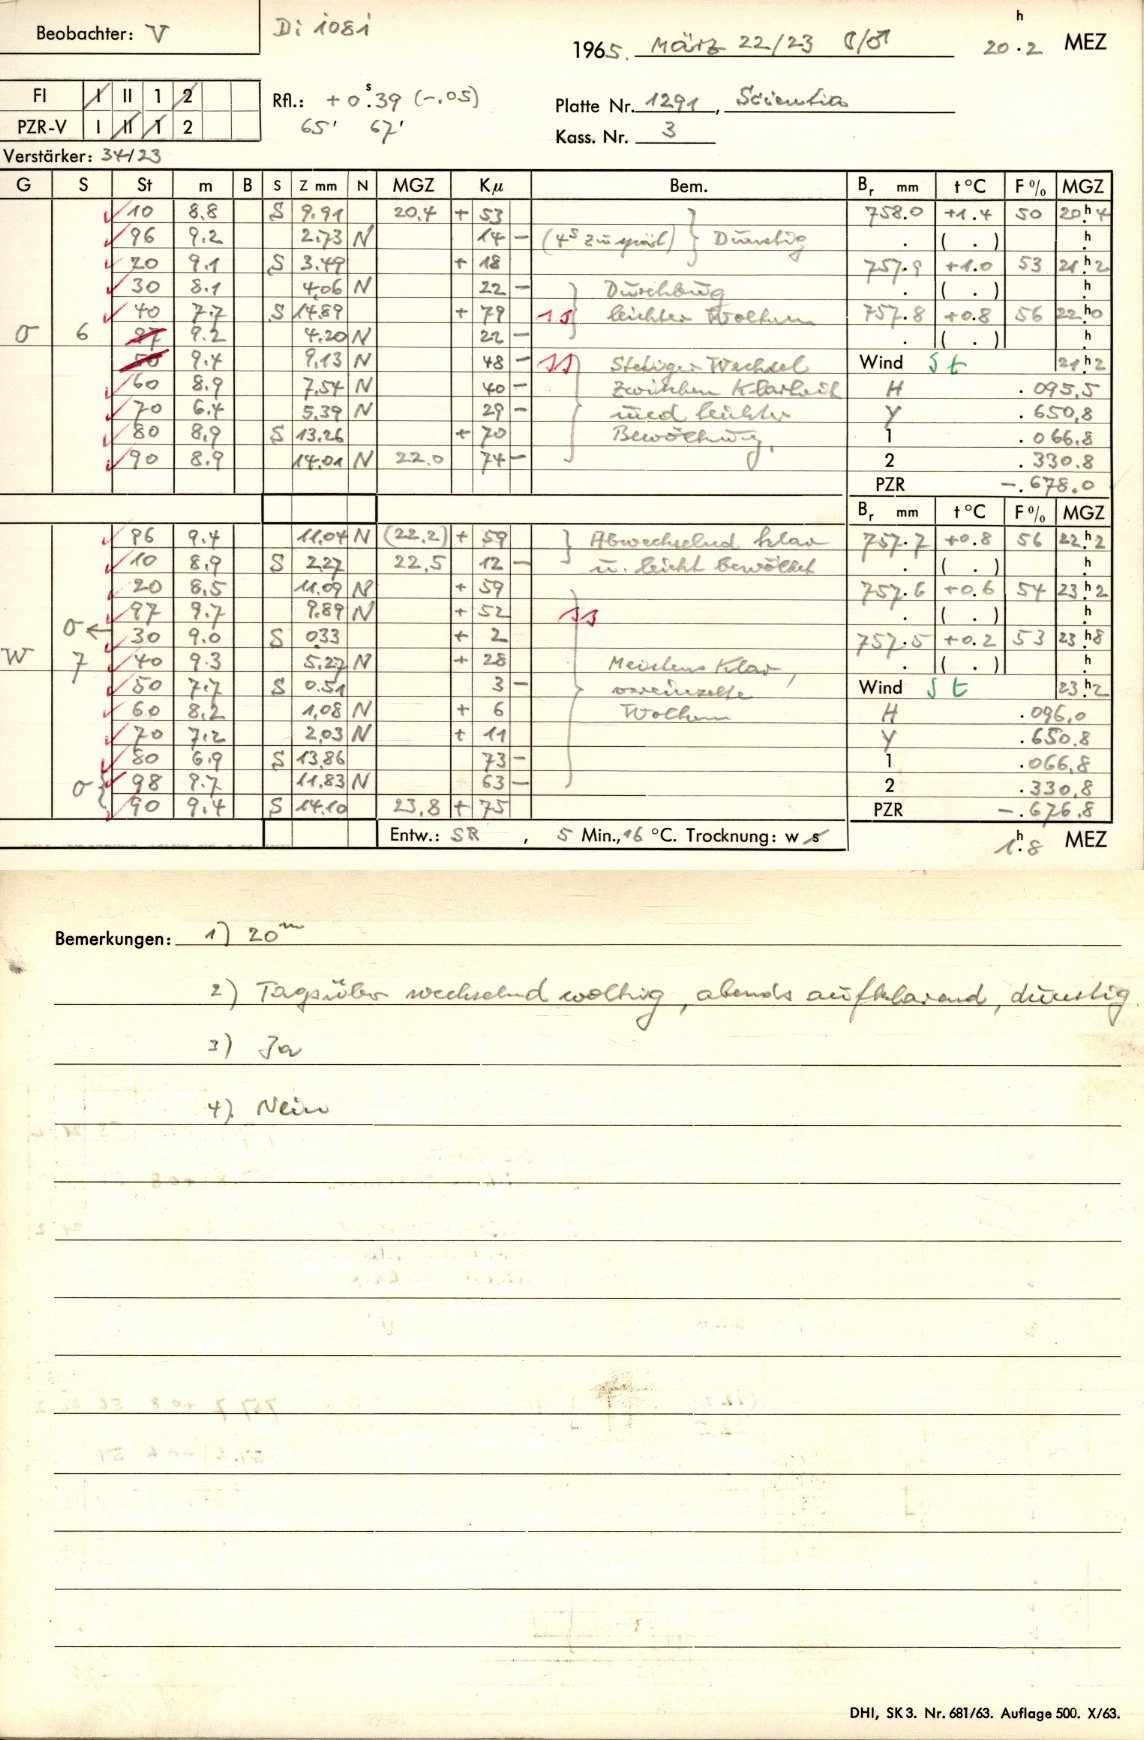 Beobachter: V
Di 1081
1965. März 22/23 ☾/♂ 20h.2 MEZ
FI I II 1 2
PZR-V I II 1 2
Rfl.: +0s.39 (-.05)
65' 67'
Platte Nr. 1291, Scientia
Kass. Nr. 3
Verstärker: 34/23
G S St m B S Z mm N MGZ Kµ Bem. Br mm t °C F % MGZ
10 8.8 S 9.91 20.4 + 53 758.0 +1.4 50 20h.4
96 9.2 2.73 N 14 - (4s zu spät) Dunstig . ( . ) h.
20 9.1 S 3.49 + 18 757.9 +1.0 53 21h.2
30 8.1 4.06 N 22 - Durchbrug . ( . ) h.
40 7.7 S 14.89 + 79 ss leichter Wolken 757.8 +0.8 56 22h.0
O 6 97 9.2 4.20 N 22 - . ( . ) h.
50 9.4 9.13 N 48 - ss Stetiger Wechsel Wind S t 21h.2
60 8.9 7.54 N 40 - zwischen Klarheit H .095,5
70 6.4 5.39 N 29 - und leichter Y .650,8
80 8,9 S 13.26 + 70 Bewölkung, 1 .066,8
90 8.9 14.01 N 22.0 74 - 2 .330.8
PZR -.678.0
Br mm t °C F % MGZ
96 9.4 11.04 N (22.2) + 59 Abwechselnd klar 757.7 +0.8 56 22h.2
10 8,9 S 2.27 22.5 12 - u. leicht bewölkt . ( . ) h.
20 8,5 11.09 N + 59 757.6 +0.6 54 23h.2
97 9.7 9.89 N + 52 ss . ( . ) h.
O ← 30 9.0 S 033 + 2 757.5 +0.2 53 23h.8
W 7 40 9.3 5.27 N + 28 Meistens klar, . ( . ) h.
50 7.7 S 0.51 3 - vereinzelte Wind S t 23h.2
60 8,2 1,08 N + 6 Wolken H .096,0
70 7,2 2,03 N + 11 Y .650.8
80 6.9 S 13,86 73 - 1 .066,8
O { 98 9.7 11.83 N 63 - 2 .330,8
90 9.4 S 14.10 23.8 + 75 PZR -.676.8
Entw.: SR , 5 Min., 16 °C. Trocknung: w s
1h.8 MEZ
Bemerkungen: 1) 20m
2) Tagsüber wechselnd wolkig, abends aufklarend, dunstig.
3) Ja
4) Nein
DHI, SK 3. Nr. 681/63. Auflage 500. X/63.